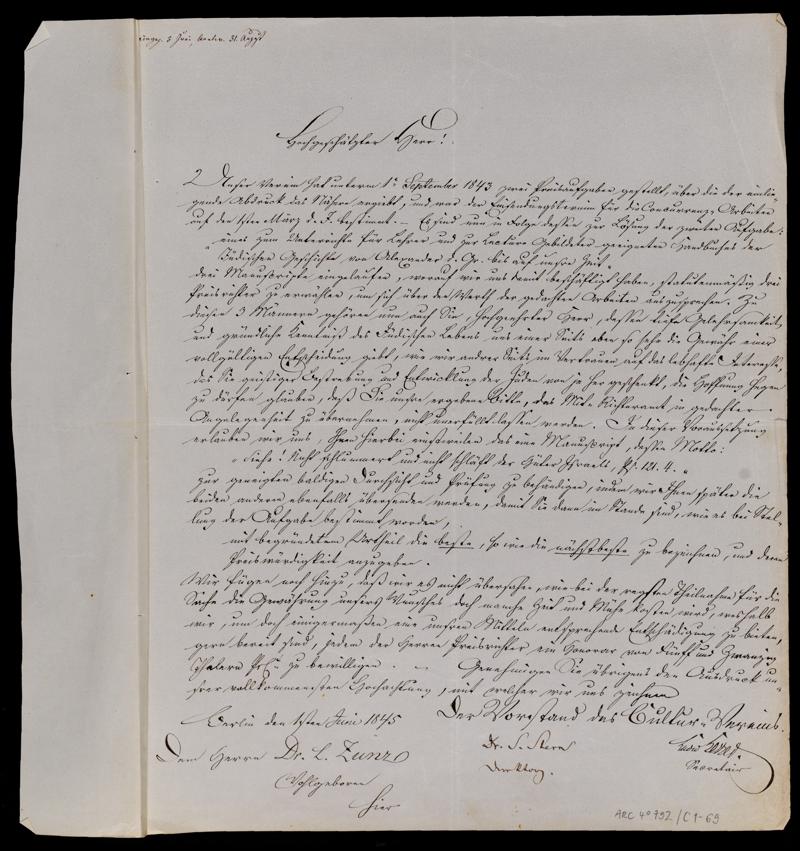 Hochgeschätzter Herr!
Unser Verein hat unterm 1n September 1843 zwei Preisaufgaben gestellt, über die der einlie-
gende Abdruck das Nähere ergiebt, und war der Einsendungstermin für die Concurrenz-Arbeiten
auf den 1sten März d. J. bestimmt. – Es sind nun in Folge dessen zur Lösung der zweiten Aufgabe:
eines zum Unterrichte für Lehrer und zur Lectüre Gebildeter geeigneten Handbuches der
Jüdischen Geschichte von Alexander d. Gr. bis auf unsere Zeit
drei Manuscripte eingelaufen, worauf wir uns damit beschäftigt haben, statutenmässig drei
Preisrichter zu erwählen, um sich über den Werth der gedachten Arbeiten auszusprechen. Zu
diesen 3 Männern gehören nun auch Sie, hochgeehrter Herr, dessen tiefe Gelehrsamkeit,
und gründliche Kenntniß des Jüdischen Lebens uns einer Seits eben so sehr die Gewähr einer
vollgültigen Entscheidung giebt, wie wir andrer Seits im Vertrauen auf das lebhafte Interesse,
das Sie geistiger Bestrebung und Entwicklung der Juden von je her geschenkt, die Hoffnung hegen
zu dürfen glauben, daß Sie unsre ergebene Bitte, das Mit-Richteramt in gedachter
Angelegenheit zu übernehmen, nicht unerfüllt lassen werden. In dieser Voraussetzung
erlauben wir uns, Ihnen hierbei einstweilen das eine Manuscript, dessen Motto:
„Siehe! Nicht schlummert und nicht schläft der Hüter Israels, Ps. 121. 4.“
zur geneigten baldigen Durchsicht und Prüfung zu behändigen, indem wir Ihnen später die
beiden anderen ebenfalls übersenden werden, damit Sie dann im Stande sind, wie es bei Stel-
lung der Aufgabe bestimmt worden,
mit begründetem Urtheil die beste, so wie die nächstbeste zu bezeichnen, und deren
Preiswürdigkeit anzugeben.
Wir fügen noch hinzu, daß wir es nicht übersehen, wie bei der regsten Theilnahme für die
Sache die Gewährung unsers Wunsches doch manche Zeit und Mühe kosten wird, weshalb
wir, um doch einigermaßen eine unsren Mitteln entsprechende Entschädigung zu bieten,
gern bereit sind, jedem der Herren Preisrichter ein Honorar von Fünf und Zwanzig
Thalern zu bewilligen. – Genehmigen Sie übrigens den Ausdruck un-
srer vollkommensten Hochachtung, mit welcher wir uns zeichnen
Der Vorstand des Cultur-Vereins.
Berlin den 1sten Juni 1845
Dem Herrn Dr. L. Zunz
Wohlgeboren
hier
Dr. S. Stern
Direktor.
Secretair
ARC 4° 792/C1-69